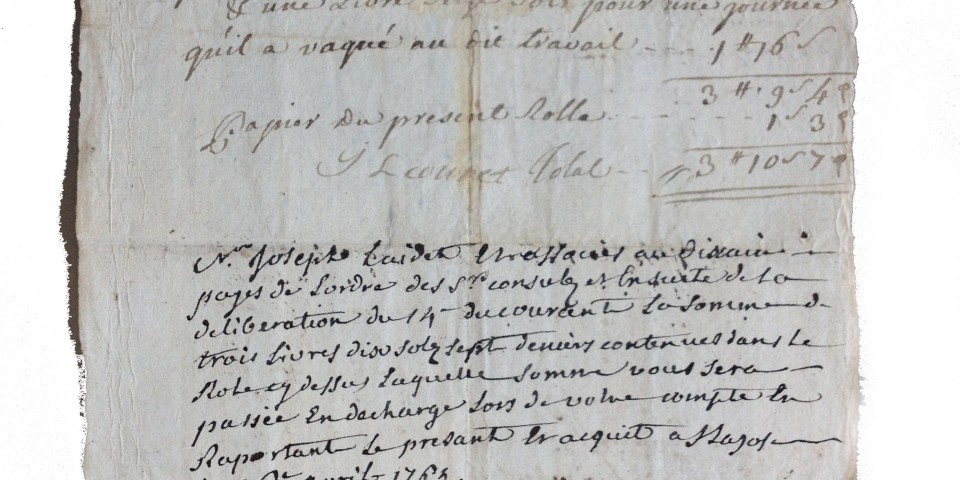 & une Livre Seize Sols pour une journée
qu'il a vaqué au dit travail - - - 1 ₶ 16 s
3 ₶ 9 s 4 d
Papier du present Rolle - - - 1 s 3 d
Total - - 3 ₶ 10 s 7 d
Joseph
payes de Lordre des Srs consulz et Ensuite de La
deliberation du 14e du courant La Somme de
trois Livres dix solz sept deniers contenues dans Le
Role cy dessus Laquelle somme vous sera
passée En decharge Lors de votre compte En
Raportant Le presant Et acquit a
avril